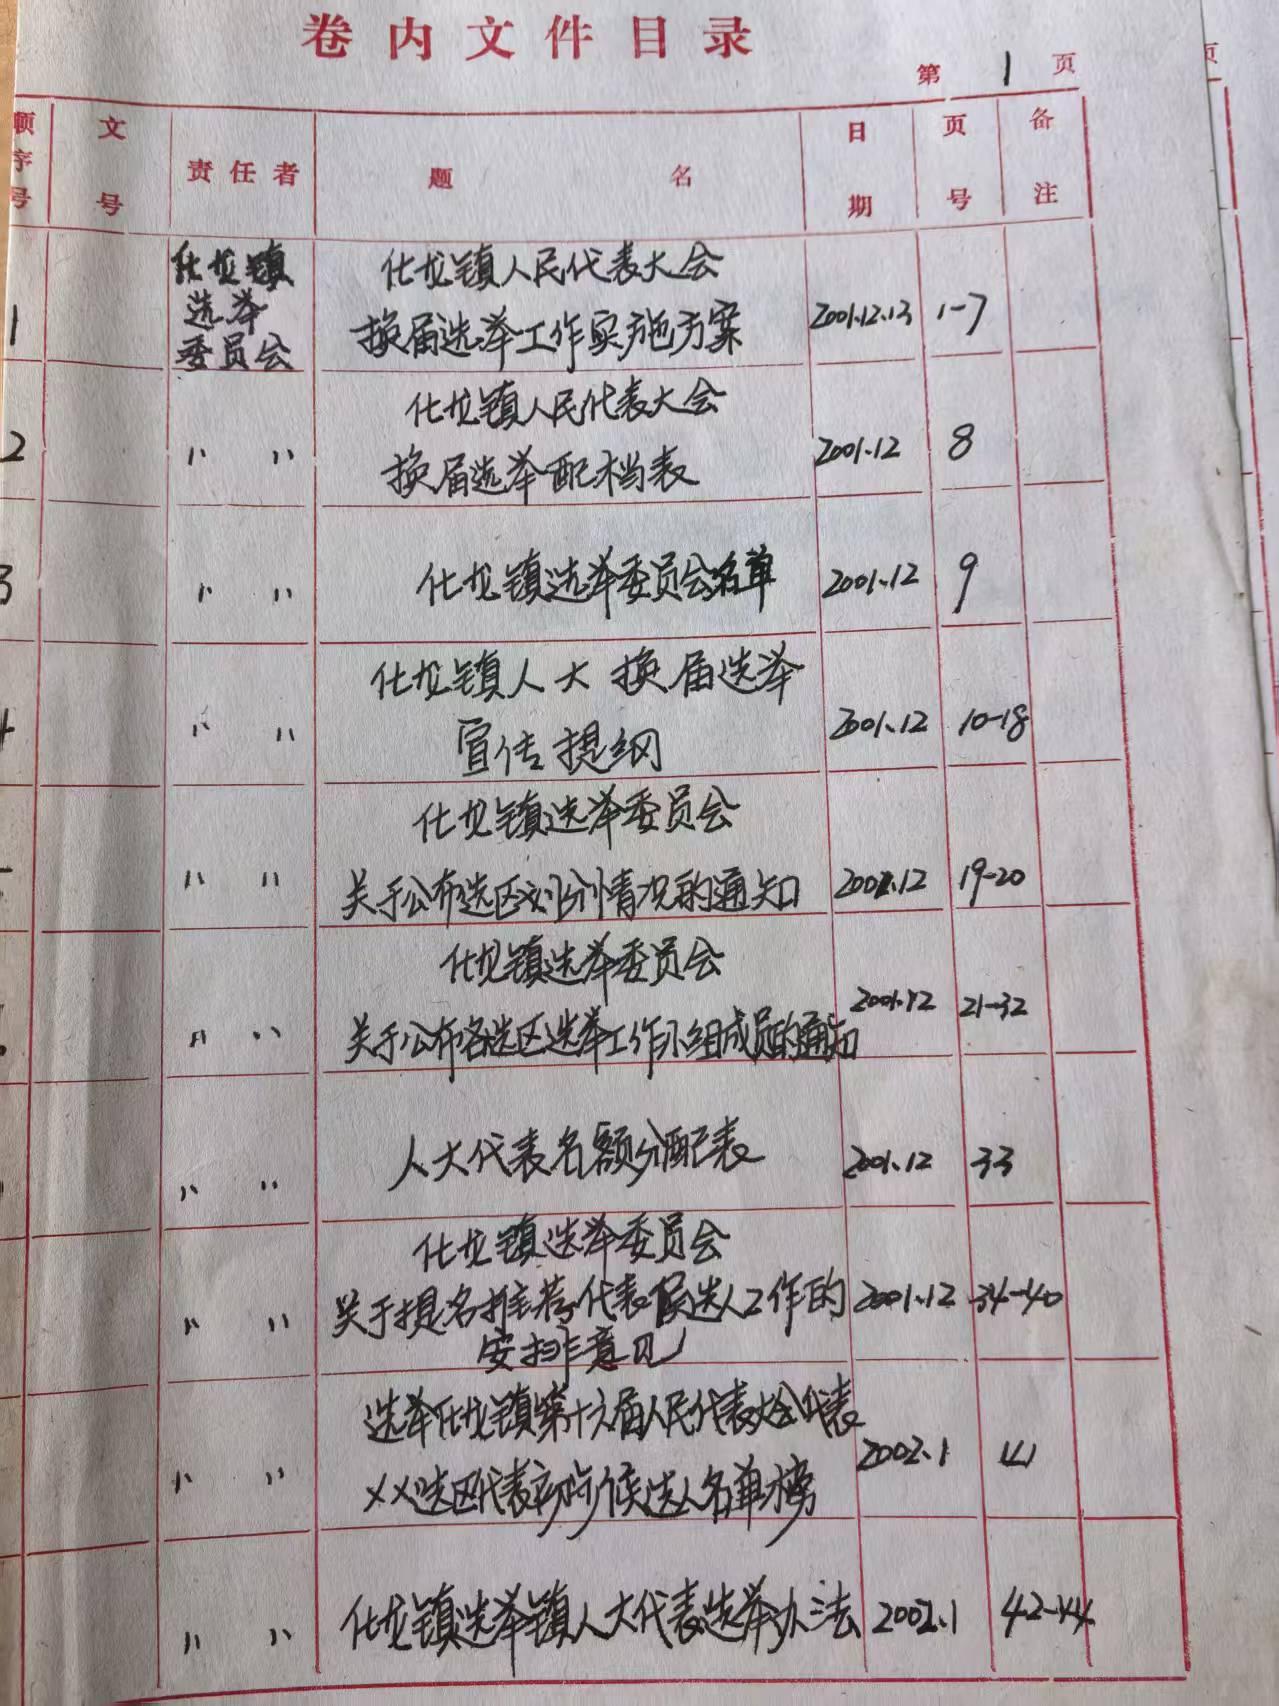 卷内文件目录
第 1 页
页
顺序号 文号 责任者 题名 日期 页号 备注
1 仕龙镇选举委员会 仕龙镇人民代表大会
换届选举工作实施方案 2001.12.13 1-7
2 〃 〃 仕龙镇人民代表大会
换届选举配档表 2001.12 8
3 〃 〃 仕龙镇选举委员会名单 2001.12 9
4 〃 〃 仕龙镇人大换届选举
宣传提纲 2001.12 10-18
〃 〃 仕龙镇选举委员会
关于公布选区划分情况的通知 2001.12 19-20
〃 〃 仕龙镇选举委员会
关于公布各选区选举工作小组成员的通知 2001.12 21-32
〃 〃 人大代表名额分配表 2001.12 33
〃 〃 仕龙镇选举委员会
关于提名推荐代表候选人工作的
安排意见 2001.12 34-40
〃 〃 选举仕龙镇第十六届人民代表大会代表
××选区代表初步候选人名单榜 2002.1 41
〃 〃 仕龙镇选举镇人大代表选举办法 2002.1 42-44